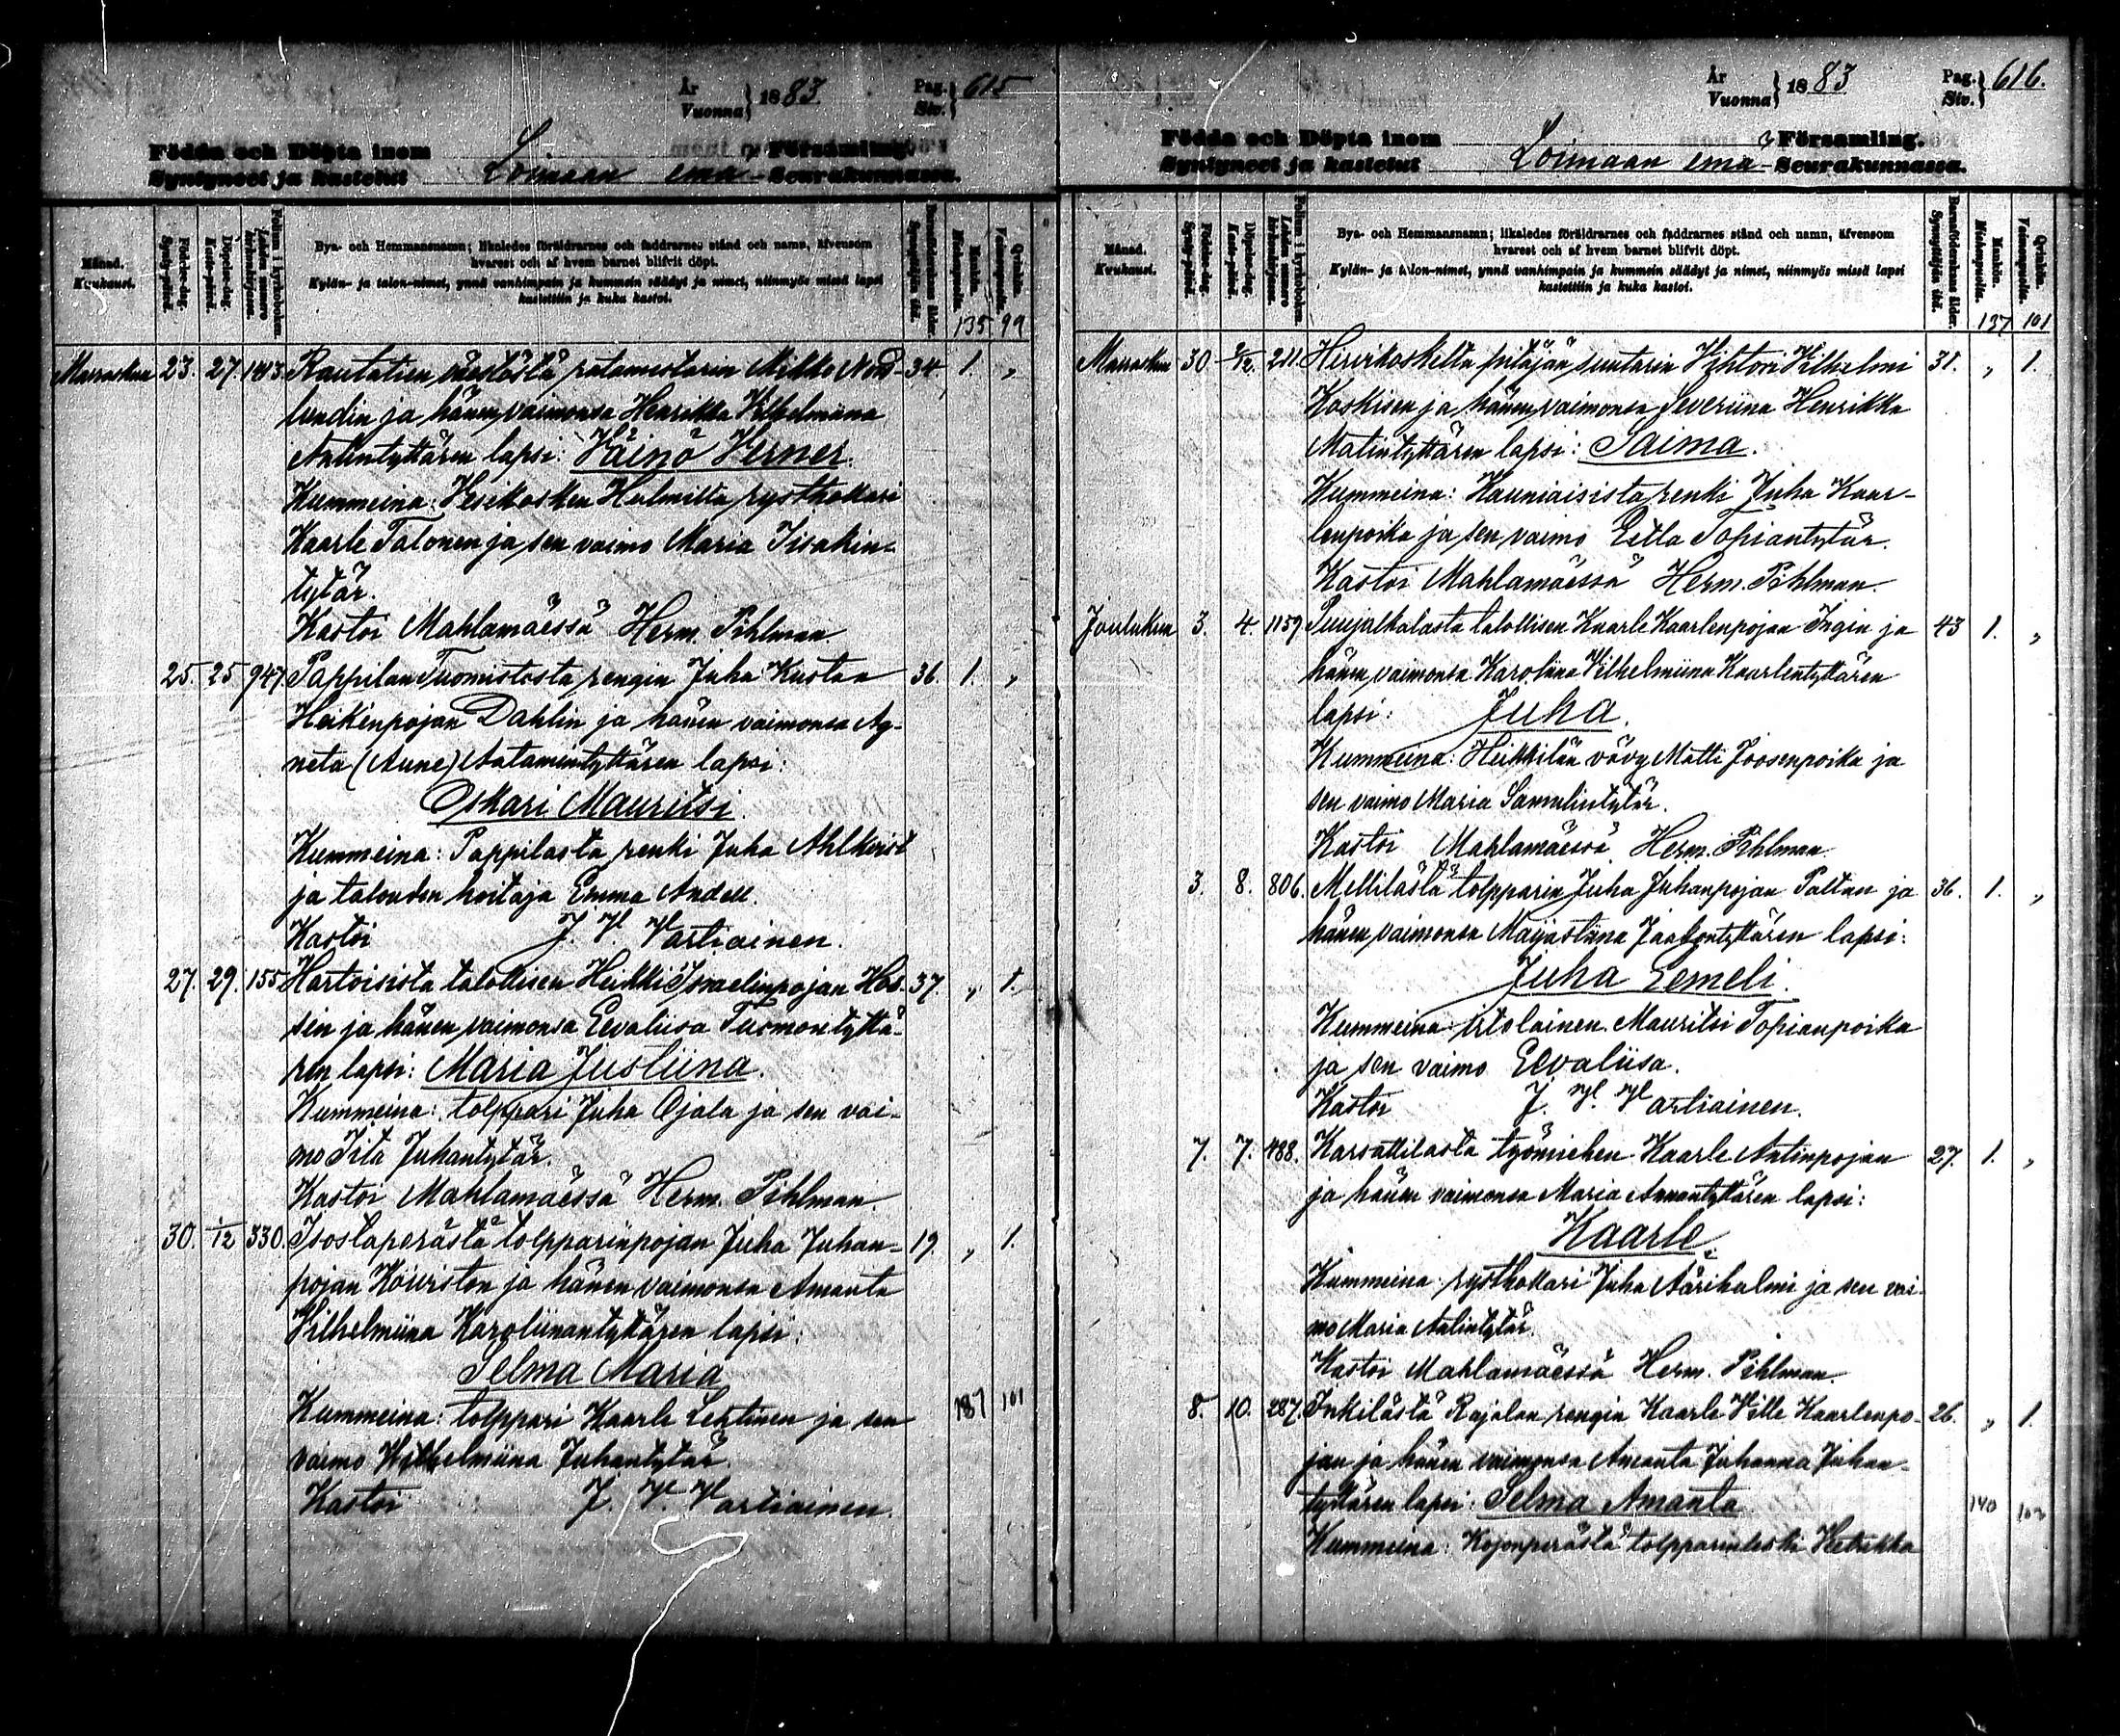 År
Vuonna } 1883.
Pag.
Siv. } 615
Födda och Döpta inom Församling.
Syntyneet ja kastetut Loimaan emä- Seurakunnassa.
Månad.
Kuukausi.
Födelse-dag.
Synty-päivä.
Döpelse-dag.
Kaste-päivä.
Folium i kyrkoboken.
Lehden numero kirkonkirjassa.
Bya- och Hemmansnamn; likaledes föräldrarnes och faddrarnes stånd och namn, äfvensom
hvarest och af hvem barnet blifvit döpt.
Kylän- ja talon-nimet, ynnä vanhimpain ja kummein säädyt ja nimet, niinmyös missä lapsi
kastettiin ja kuka kastoi.
Barnaföderskans ålder.
Synnyttäjän ikä.
Mankön.
Miehenpuolia.
Qvinkön.
Vaimonpuolia.
135 99
Marraskuu 23. 27. 143 Rautatien ratamestarin Mikko Nord- 34 1. „
lundin ja hänen vaimonsa Henrikka Vilhelmiina
Antintyttären lapsi: Väinö Verner.
Kummeina: Vesikosken Hulmilta rysthollari
Kaarle Talonen ja sen vaimo Maria Iisakin-
tytär.
Kastoi Mahlamäessä Herm. Pihlman
25. 25 947. Pappilan Tuomistosta rengin Juha Kustaa 36. 1. „
Heikinpojan Dahlin ja hänen vaimonsa Ag-
neta (Aune) Aatamintyttären lapsi:
Oskari Mauritsi.
Kummeina: Pappilasta renki Juha Ahlkvist
ja talouden hoitaja Emma Andell.
Kastoi J. V. Vartiainen.
27. 29. 155 Hartoisista talollisen Heikki Israelinpojan Hos- 37. „ 1.
sin ja hänen vaimonsa Eevaliisa Tuomontyttä-
ren lapsi: Maria Justiina.
Kummeina: tolppari Juha Ojala ja sen vai-
mo Iita Juhantytär.
Kastoi Mahlamäessä Herm. Pihlman.
30. 1/12 330. Isostaperästä tolpparinpojan Juha Juhan- 19. „ 1.
pojan Koiviston ja hänen vaimonsa Amanta
Vilhelmiina Karoliinantyttären lapsi:
Selma Maria
Kummeina: tolppari Kaarle Lehtinen ja sen 137 101
vaimo Wilhelmiina Juhantytär.
Kastoi J. V. Vartiainen.
År
Vuonna } 1883
Pag.
Siv. } 616.
Födda och Döpta inom Församling.
Syntyneet ja kastetut Loimaan emä- Seurakunnassa.
Månad.
Kuukausi.
Födelse-dag.
Synty-päivä.
Döpelse-dag.
Kaste-päivä.
Folium i kyrkoboken.
Lehden numero kirkonkirjassa.
Bya- och Hemmansnamn; likaledes föräldrarnes och faddrarnes stånd och namn, äfvensom
hvarest och af hvem barnet blifvit döpt.
Kylän- ja talon-nimet, ynnä vanhimpain ja kummein säädyt ja nimet, niinmyös missä lapsi
kastettiin ja kuka kastoi.
Barnaföderskans ålder.
Synnyttäjän ikä.
Mankön.
Miehenpuolia.
Qvinkön.
Vaimonpuolia.
137 101
Marraskuu 30 2/12. 211. Hirvikoskelta pitäjän suutarin Vihtori Vilhelmi 31. „ 1.
Koskisen ja hänen vaimonsa Severiina Henrikka
Matintyttären lapsi: Saima.
Kummeina: Kauniaisista renki Juha Kaar-
lenpoika ja sen vaimo Eetla Topiantytär.
Kastoi Mahlamäessä Herm. Pihlman.
Joulukuu 3. 4. 1159 Puujalkalasta talollisen Kaarle Kaarlenpojan Ingin ja 43 1. „
hänen vaimonsa Karoliina Vilhelmiina Kaarlentyttären
lapsi: Juha.
Kummeina: Heikkilän vävy Matti Joosenpoika ja
sen vaimo Maria Samulintytär.
Kastoi Mahlamäessä Herm. Pihlman.
3. 8. 806. Mellilästä tolpparin Juha Juhanpojan Paltan ja 36. 1. „
hänen vaimonsa Maijastiina Jaakontyttären lapsi:
Juha Eemeli.
Kummeina: irtolainen Mauritsi Topianpoika
ja sen vaimo Eevaliisa.
Kastoi J. V. Vartiainen.
7. 7. 488. Karsattilasta työmiehen Kaarle Antinpojan 27. 1. „
ja hänen vaimonsa Maria Annantyttären lapsi:
Kaarle
Kummeina: rysthollari Juha Äärihalmi ja sen vai-
mo Maria Antintytär.
Kastoi Mahlamäessä Herm. Pihlman.
8. 10. 287. Inkilästä Rajalan rengin Kaarle Ville Kaarlenpo- 26. „ 1.
jan ja hänen vaimonsa Amanta Juhanna Juhan-
tyttären lapsi: Selma Amanta 140
Kummeina: Kojonperästä tolpparinleski